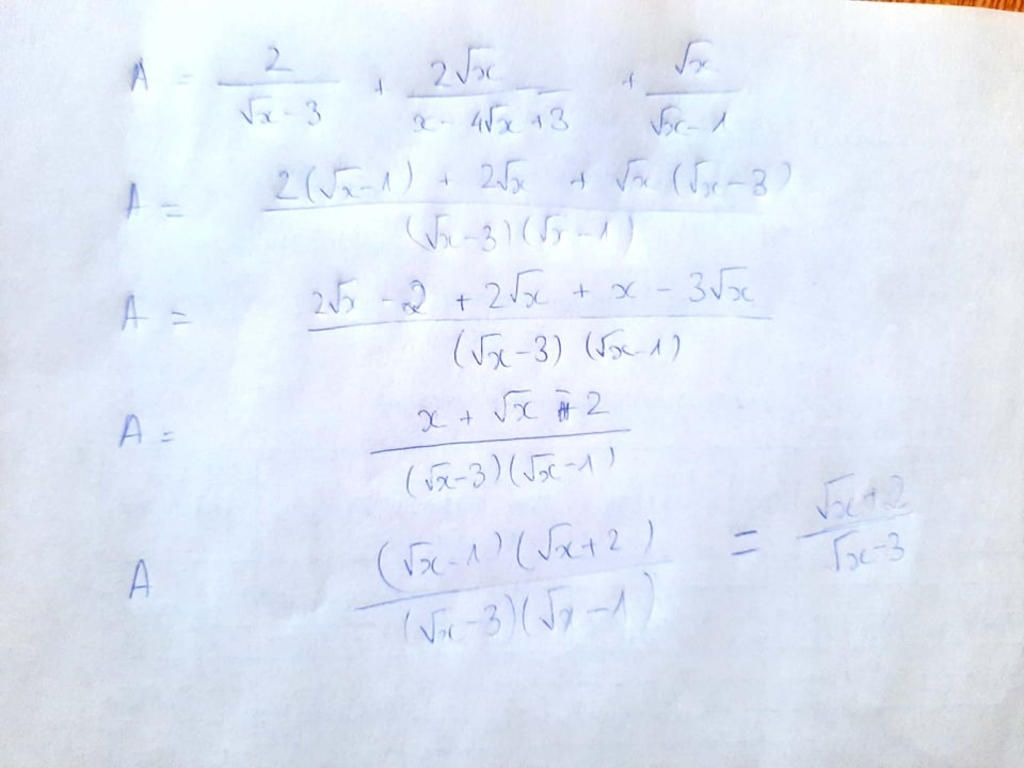 A = 2/(√x - 3) + 2√x/(x - 4√x + 3) + √x/(√x - 1)
A = (2(√x - 1) + 2√x + √x(√x - 3))/((√x - 3)(√x - 1))
A = (2√x - 2 + 2√x + x - 3√x)/((√x - 3)(√x - 1))
A = (x + √x - 2)/((√x - 3)(√x - 1))
A ((√x - 1)(√x + 2))/((√x - 3)(√x - 1)) = (√x + 2)/(√x - 3)